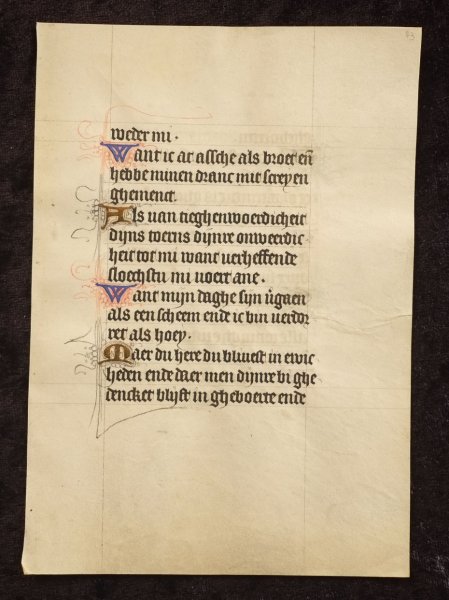 weder mi ·
Want ic at assche als broet en̄
hebbe minen dranc mit screyen
ghemenct.
Als van teghenwoerdicheit
dijns toerns dijnre onweerdic
heit tot mi want verheffende
stoechstu mi voert ane ·
Want mijn daghe sijn v̄gaen
als een scheem ende ic bin verdor
ret als hoey ·
Maer du here du bliveste in ewic
heden ende daer men dijnre bi ghe
dencket blijft in gheboerte ende